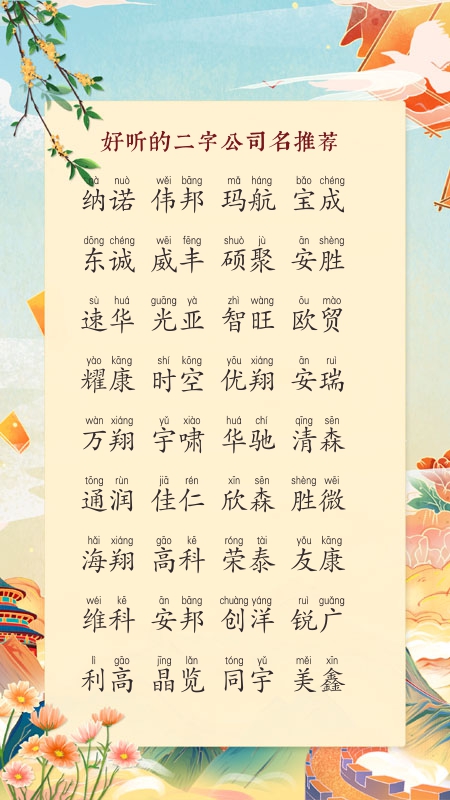 好听的二字公司名推荐
nà nuò wěi bāng mǎ háng bǎo chéng
纳诺 伟邦 玛航 宝成
dōng chéng wēi fēng shuò jù ān shèng
东诚 威丰 硕聚 安胜
sù huá guāng yà zhì wàng ōu mào
速华 光亚 智旺 欧贸
yào kāng shí kōng yōu xiáng ān ruì
耀康 时空 优翔 安瑞
wàn xiáng yǔ xiào huá chí qīng sēn
万翔 宇啸 华驰 清森
tōng rùn jiā rén xīn sēn shèng wēi
通润 佳仁 欣森 胜微
hǎi xiáng gāo kē róng tài yǒu kāng
海翔 高科 荣泰 友康
wéi kē ān bāng chuàng yáng ruì guǎng
维科 安邦 创洋 锐广
lì gāo jīng lǎn tóng yǔ měi xīn
利高 晶览 同宇 美鑫